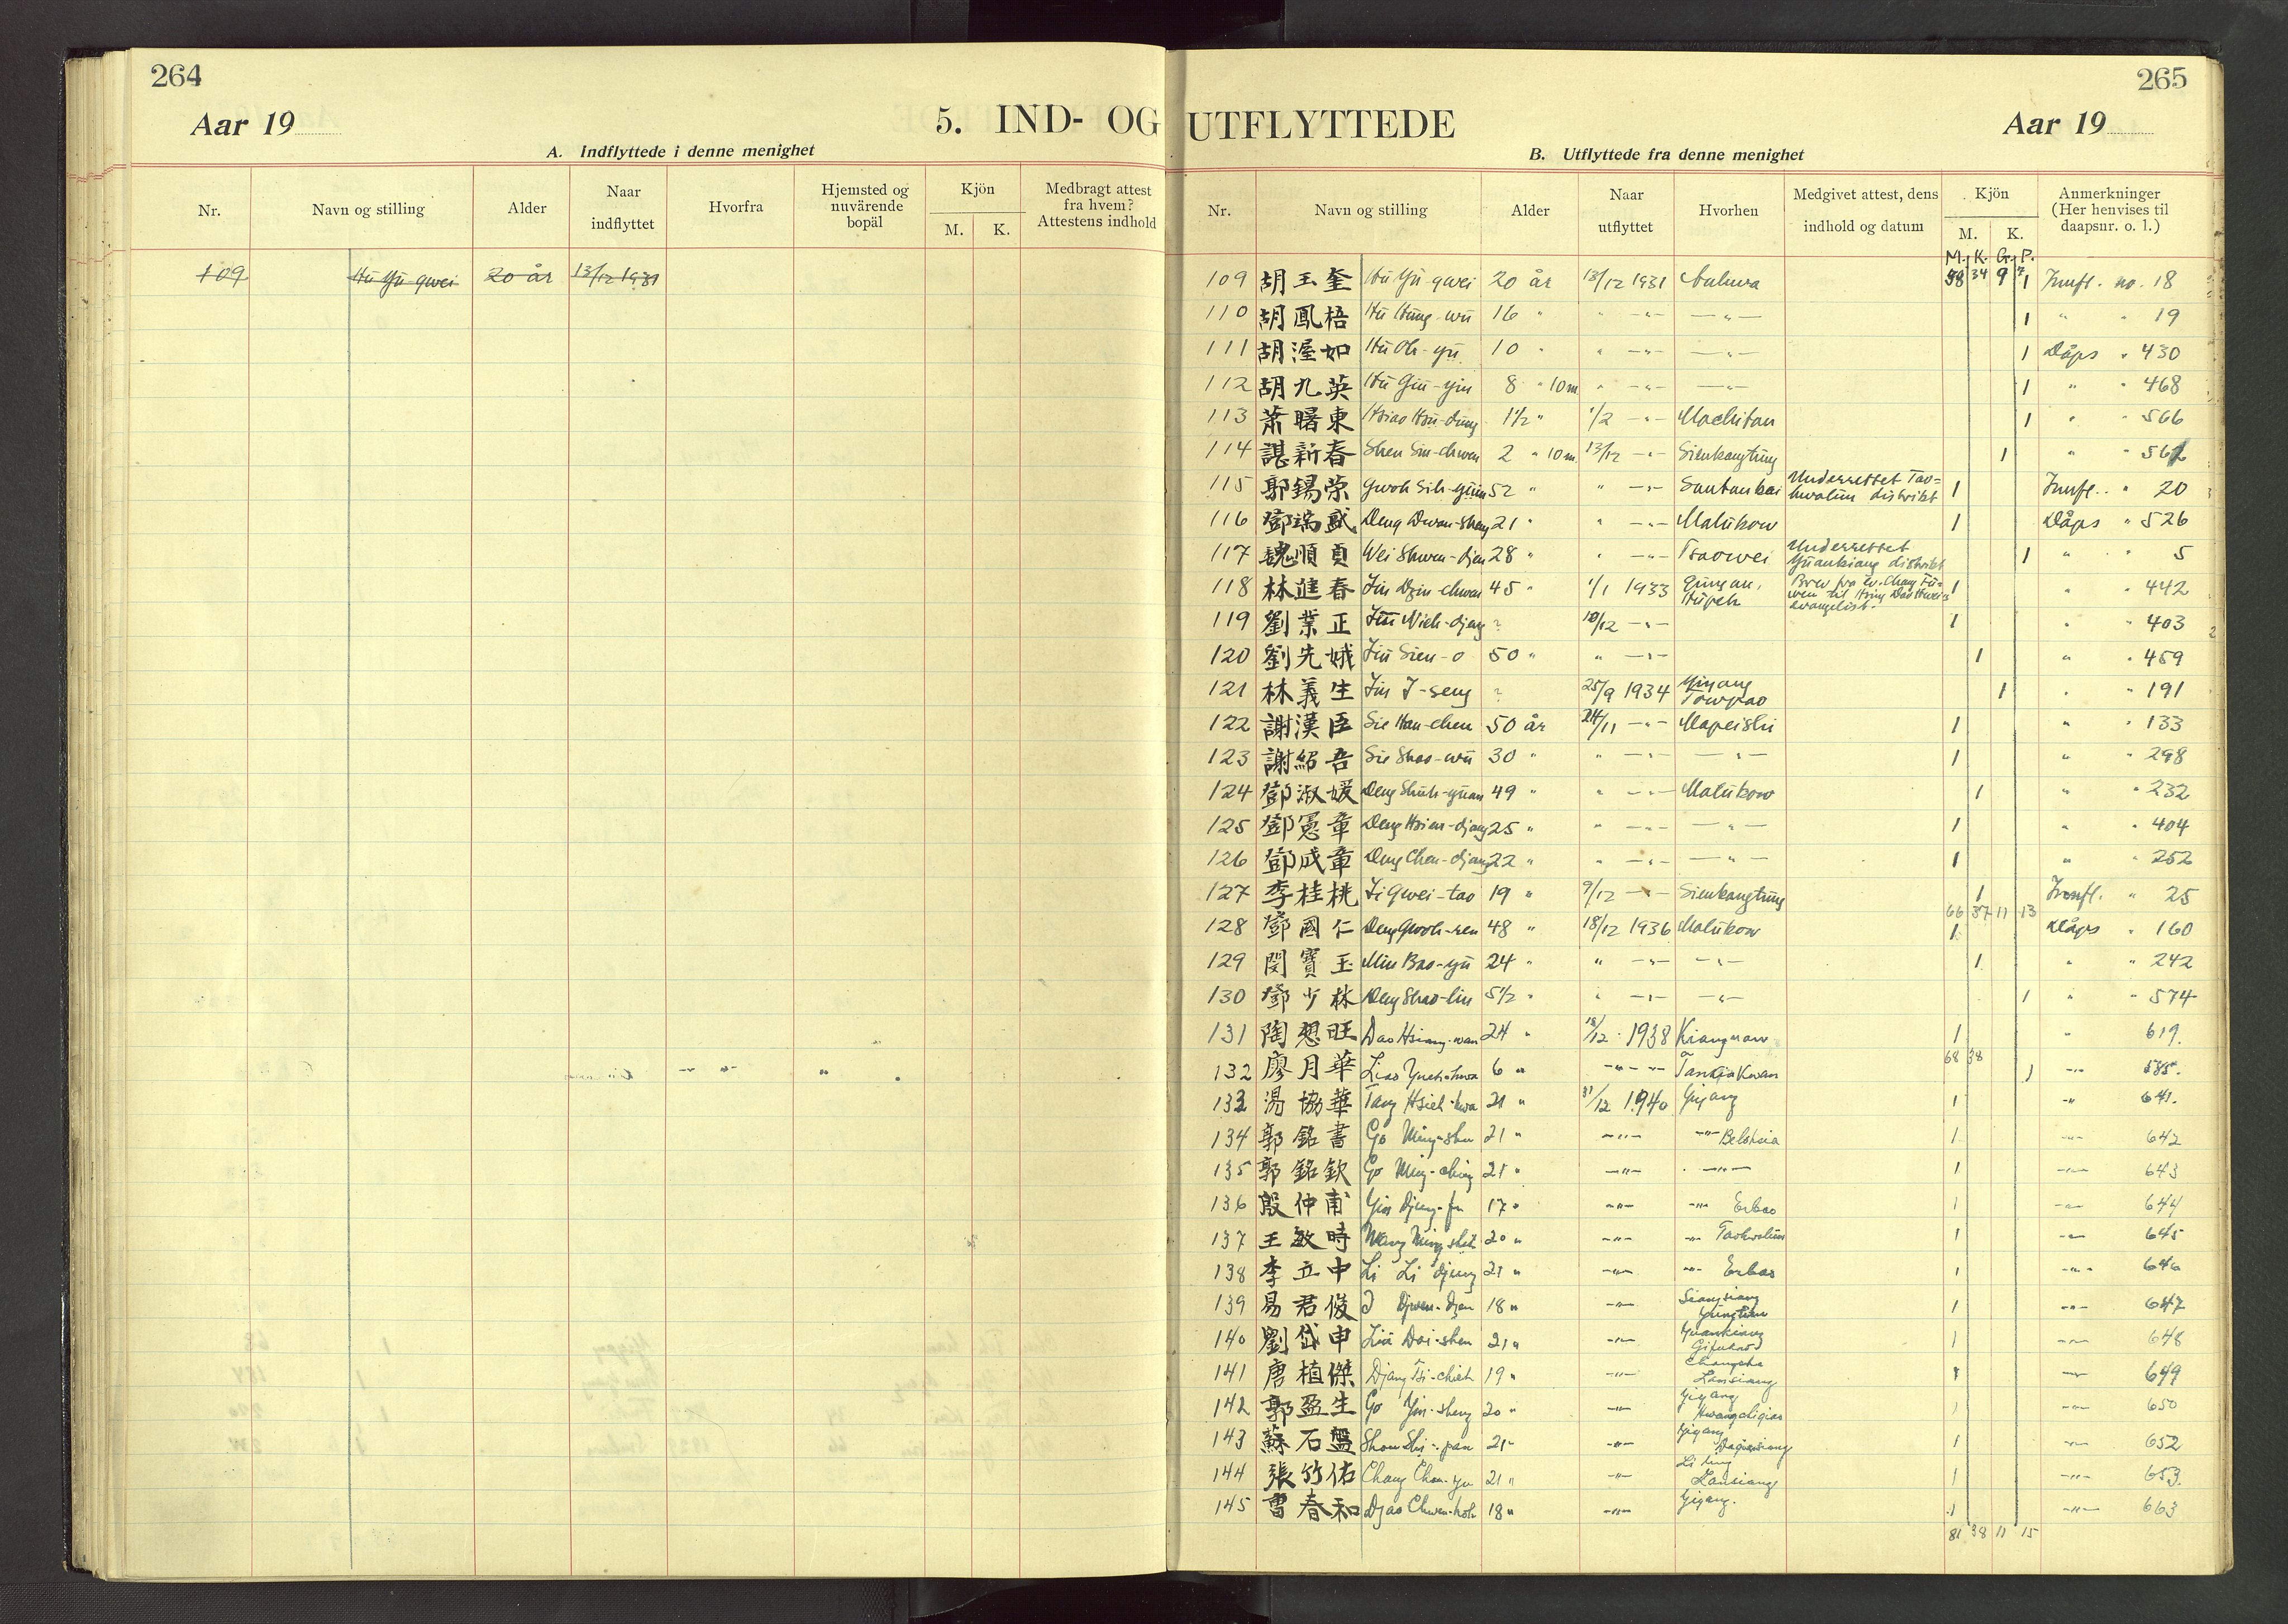 264
Aar 19
5. IND- OG
A. Indflyttede i denne menighet
Nr.
Navn og stilling
Alder
Naar
indflyttet
Hvorfra
Hjemsted og
nuværende
bopäl
Kjön
M. K.
Medbragt attest
fra hvem?
Attestens indhold
109 Hu Yü-qwei 20 år 13/12 1931
265
UTFLYTTEDE
Aar 19
B. Utflyttede fra denne menighet
Nr.
Navn og stilling
Alder
Naar
utflyttet
Hvorhen
Medgivet attest, dens
indhold og datum
Kjön
M. K.
Anmerkninger
(Her henvises til
daapsnr. o. l.)
M. K. G. P.
109 胡玉奎 Hu Yü-qwei 20 år 13/12 1931 58 34 9 7 1 Innfl. no. 18
110 胡鳳梧 16 " " -"- -"- 1 " " 19
111 胡渥如 Hu Oh-yü 10 " " -"- -"- 1 Dåps " 430
112 胡九英 Hu Giu-yin 8 " 10 m " -"- -"- 1 " " 468
113 萧曙東 Hsiao Hsü-dung 1½ " 1/2 -"- Machitan 1 " " 566
114 諶新春 Shen Sin-chwen 2 " 10 m. 13/12 -"- Sienkangtung 1 " " 562
115 郭錫荣 Gwoh Sih-yüin 52 " " -"- Santankai Underrettet Tao=
hwalün distrikt 1 Innfl. " 20
116 鄧端盛 Deng Dwan-sheng 21 " " -"- Malükow 1 Dåps " 526
117 魏順貞 Wei Shwen-djen 28 " " -"- Tsaowei Underrettet
Yüankiang distrikt 1 " " 5
118 林進春 Lin Dzin-chwen 45 " 1/1 1933 Hupeh Brev fra ev. Chang Fu-
wen til
evangelist. 1 " " 442
119 劉業正 Liu Nieh-djeng ? 10/12 -"- 1 " " 403
120 劉先娥 Liu Sien-o 50 " " -"- 1 " " 459
121 林義生 Lin I-seng ? 25/9 1934 Yiyang
Towpao 1 " " 191
122 謝漢臣 Sie Han-chen 50 år 24/11 -"- Mapeishi 1 " " 133
123 謝紹吾 Sie Shao-wu 30 " " -"- -"- 1 " " 298
124 鄧淑媛 Deng Shuh-yüan 49 " " -"- Malükow 1 " " 232
125 鄧憲章 Deng Hsien-djang 25 " " -"- -"- 1 " " 404
126 鄧成章 Deng Chen-djang 22 " " -"- -"- 1 " " 252
127 李桂桃 Li Gwei-tao 19 " 9/12 -"- Sienkangtung 1 Innfl. " 25
66 37 11 13
128 鄧國仁 Deng Gwoh-ren 48 " 18/12 1936 Malükow 1 Dåps " 160
129 閔寶玉 Min Bao-yü 24 " " -"- -"- 1 " " 242
130 鄧少林 Deng Shao-lin 5½ " " -"- -"- 1 " " 574
131 陶想旺 Dao Hsiang-wan 24 " 18/12 1938 Kiangnan 1 " 619.
68 38
132 廖月華 Liao Yueh-hwa 6 " -"- Tankiakwan 1 -"- 585.
133 湯協華 Tang Hsieh-hwa 21 " 31/12 1940 Yiyang 1 -"- 641.
134 郭銘書 Go Ming-shu 21 " -"- -"- 1 -"- 642
135 郭銘欽 Go Ming-ching 21 " -"- -"- 1 -"- 643
136 殷仲甫 Yin Djung-fu 17 " -"- -"- Erbao 1 -"- 644
137 王敏時 Wang Ming shih 20 " -"- -"- Taohwalün 1 -"- 645
138 李立中 Li Li djung 21 " -"- -"- Erbao 1 -"- 646
139 易君俊 I Djwen-dzen 18 " -"- Siangsiang 1 -"- 647
140 劉岱申 Liu Dai-shen 21 " -"- Yuankiang 1 -"- 648
141 唐植傑 19 " -"- Changsha
Lansiang 1 -"- 649
142 郭盈生 Go Yin-sheng 20 " -"- Yiyang 1 -"- 650
143 蘇石盤 21 " -"- Yiyang 1 -"- 652
144 張竹佑 Chang Chou-yu 21 " -"- Li ling
Lansiang 1 -"- 653.
145 曹春和 Djao Chwen-hoh 18 " -"- Yiyang. 1 -"- 663
81 38 11 15